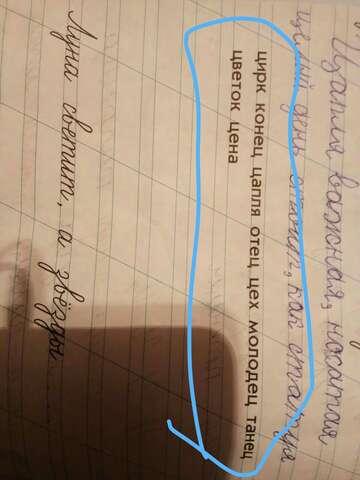 Цапля важная, носатая
целый день стоит, как статуя
цирк конец цапля отец цех молодец танец
цветок цена
Луна светит, а звёзды